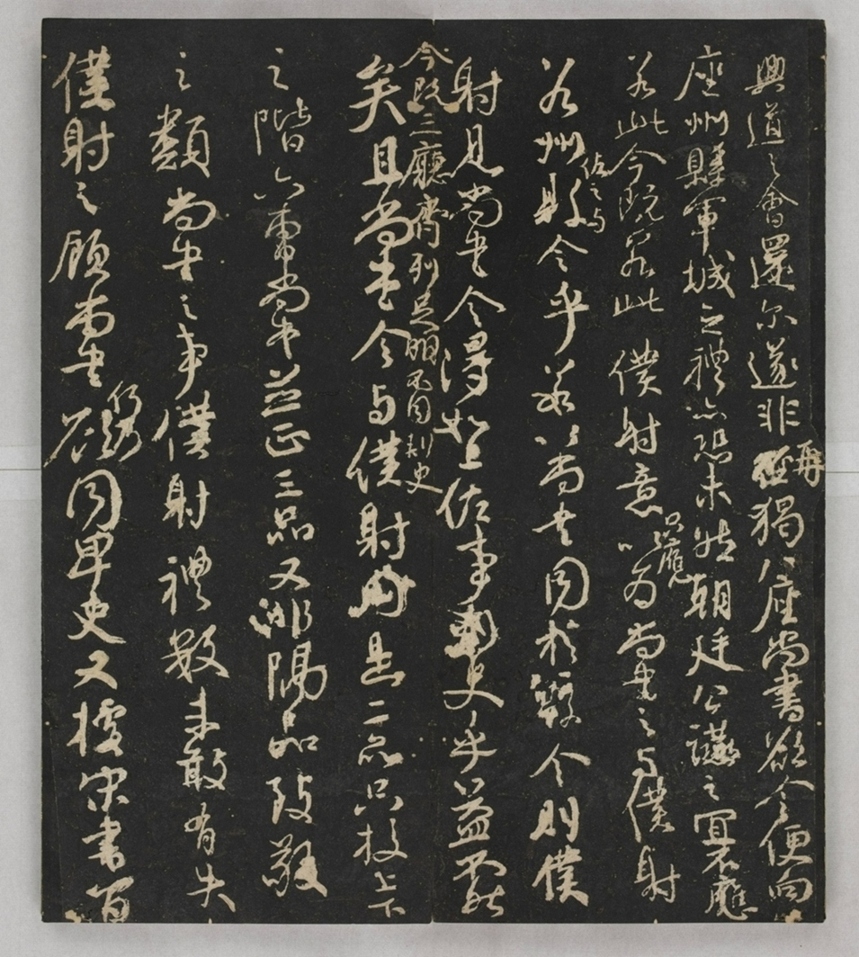 興道之會還尔遂非再猲八座尚書欲令便向
座州縣軍城之禮亦恐未然朝廷公讌之宜不應
若此今既若此僕射意只應以為尚書之與僕射
若州佐之與縣令乎若以尚書同於縣令則僕
射見尚書令得如上佐事刺史乎益不然
矣今既三廳齊列足明不同刺史且尚書令與僕射同是二品只校上下
之階六曹尚書並正三品又非隔品致敬
之類尚書之事僕射禮數未敢有失
僕射之顧尚書何乃欲同卑吏又據宋書百